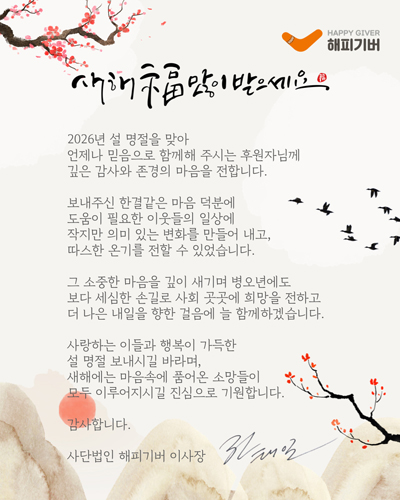 HAPPY GIVER
해피기버
새해福많이받으세요
2026년 설 명절을 맞아
언제나 믿음으로 함께해 주시는 후원자님께
깊은 감사와 존경의 마음을 전합니다.
보내주신 한결같은 마음 덕분에
도움이 필요한 이웃들의 일상에
작지만 의미 있는 변화를 만들어 내고,
따스한 온기를 전할 수 있었습니다.
그 소중한 마음을 깊이 새기며 병오년에도
보다 세심한 손길로 사회 곳곳에 희망을 전하고
더 나은 내일을 향한 걸음에 늘 함께하겠습니다.
사랑하는 이들과 행복이 가득한
설 명절 보내시길 바라며,
새해에는 마음속에 품어온 소망들이
모두 이루어지시길 진심으로 기원합니다.
감사합니다.
사단법인 해피기버 이사장